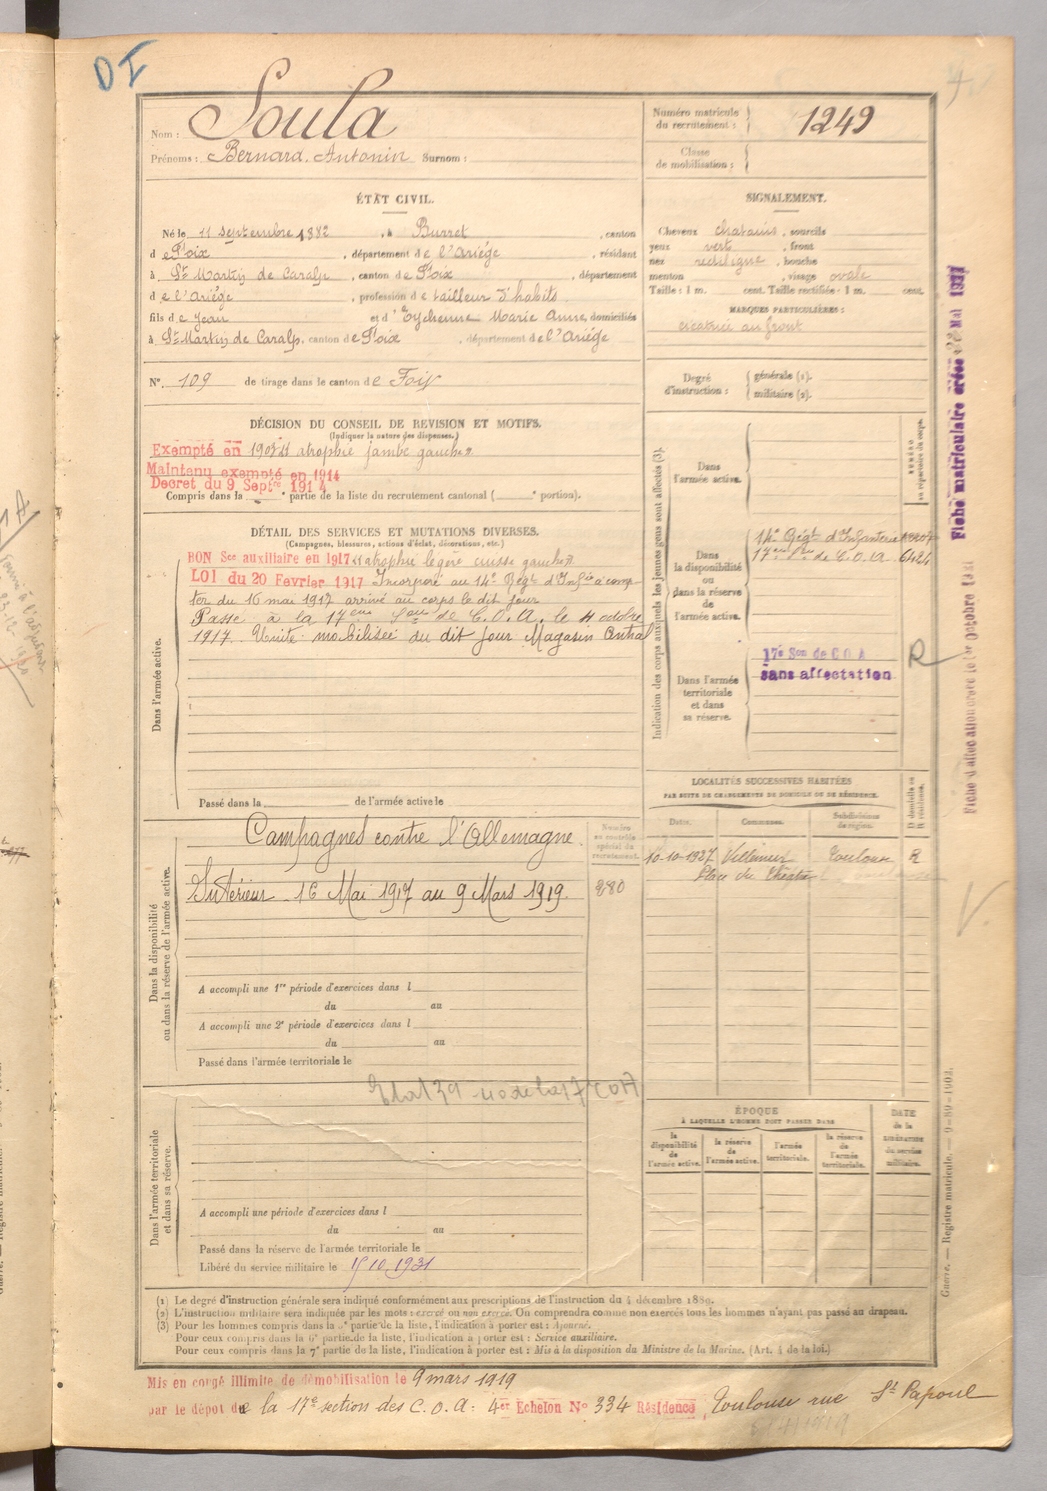 DI
Nom : Soula
Prénoms : Bernard Antonin Surnom :
Numéro matricule du recrutement : 1249
Classe de mobilisation :
ÉTAT CIVIL.
Né le 11 septembre 1882, à Burret, canton
de Foix, département de l'Ariège, résidant
à St Martin de Caralp, canton de Foix, département
de l'Ariège, profession de tailleur d'habits
fils de Jean et d'Eychenne Marie Anne, domiciliés
à St Martin de Caralp, canton de Foix, département de l'Ariège
N° 109 de tirage dans le canton de Foix
SIGNALEMENT.
Cheveux chatains, sourcils
yeux verts, front
nez rectiligne, bouche
menton, visage ovale
Taille : 1 m. cent. Taille rectifiée : 1 m. cent.
MARQUES PARTICULIÈRES :
cicatrice au front
Degré d'instruction : générale (1). militaire (2).
DÉCISION DU CONSEIL DE REVISION ET MOTIFS.
(Indiquer la nature des dispenses.)
Exempté en 1903 atrophie jambe gauche
Maintenu exempté en 1914
Decret du 9 Septre 1914
Compris dans la e partie de la liste du recrutement cantonal ( e portion).
DÉTAIL DES SERVICES ET MUTATIONS DIVERSES.
(Campagnes, blessures, actions d'éclat, décorations, etc.)
BON Sce auxiliaire en 1917 atrophie légère cuisse gauche
LOI du 20 Fevrier 1917 Incorporé au 14e Régt d'Infie à comp-
ter du 16 mai 1917 arrivé au corps le dit jour
Passé à la 17eme Son de C.O.A. le 4 octobre
1917. Unité mobilisée du dit jour Magasin Central
Dans l'armée active.
Passé dans la de l'armée active le
Indication des corps auxquels les jeunes gens sont affectés (3).
Dans l'armée active.
NUMÉRO au répertoire du corps.
Dans la disponibilité ou dans la réserve de l'armée active.
14e Régt d'Infanterie
17eme Son de C.O.A
Dans l'armée territoriale et dans sa réserve.
17e Son de C O A
sans affectation
R
Fiche matriculaire créée Mai 1937
LOCALITÉS SUCCESSIVES HABITÉES
PAR SUITE DE CHANGEMENTS DE DOMICILE OU DE RÉSIDENCE.
Dates. Communes. Subdivisions de région. D domicile ou R résidence.
10-10-1927 Villemur Toulouse R
Place du Théâtre
Dans la disponibilité ou dans la réserve de l'armée active.
Campagnes contre l'Allemagne.
Intérieur 16 Mai 1917 au 9 Mars 1919.
Numéro au contrôle spécial du recrutement.
280
A accompli une 1re période d'exercices dans l
du au
A accompli une 2e période d'exercices dans l
du au
Passé dans l'armée territoriale le
Dans l'armée territoriale et dans sa réserve.
A accompli une période d'exercices dans l
du au
Passé dans la réserve de l'armée territoriale le
Libéré du service militaire le 15 10 1931
ÉPOQUE
À LAQUELLE L'HOMME DOIT PASSER DANS
la disponibilité de l'armée active. la réserve de l'armée active. l'armée territoriale. la réserve de l'armée territoriale.
DATE de la libération du service militaire.
Guerre. — Registre matricule. — 9-89-1903.
(1) Le degré d'instruction générale sera indiqué conformément aux prescriptions de l'instruction du 4 décembre 1889.
(2) L'instruction militaire sera indiquée par les mots : exercé ou non exercé. On comprendra comme non exercés tous les hommes n'ayant pas passé au drapeau.
(3) Pour les hommes compris dans la 5e partie de la liste, l'indication à porter est : Ajourné.
Pour ceux compris dans la 6e partie de la liste, l'indication à porter est : Service auxiliaire.
Pour ceux compris dans la 7e partie de la liste, l'indication à porter est : Mis à la disposition du Ministre de la Marine. (Art. 4 de la loi.)
Mis en congé illimité de démobilisation le 9 mars 1919
par le dépôt de la 17e section des C.O.A. 4er Echelon N° 334 Résidence Toulouse rue St Papoul